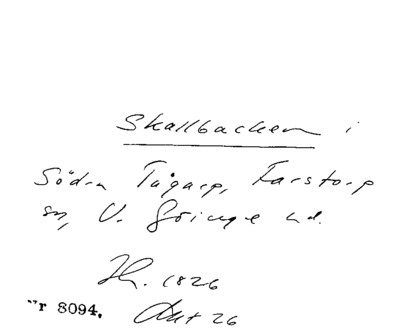 Skallbacken i
Södra Tågarp, Farstorp
sn, V. Göinge hd.
Hr. 1826
"r 8094. Akt 26